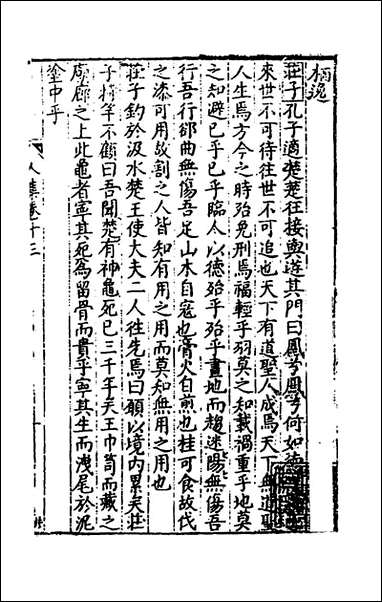 栖逸
莊子孔子適楚楚狂接輿遊其門曰鳳兮鳳兮何如德
來世不可待往世不可追也天下有道聖人成焉天下無道聖
人生焉方今之時殆免刑焉福輕乎羽莫之知載禍重乎地莫
之知避已乎已乎臨人以德殆乎殆乎畫地而趨迷陽無傷吾
行吾行郤曲無傷吾足山木自寇也膏火自煎也桂可食故伐
之漆可用故割之人皆知有用之用而莫知無用之用也
莊子釣於汲水楚王使大夫二人往先焉曰願以境内累矣莊
子持竿不顧曰吾聞楚有神龜死已三千年矣王巾笥而藏之
廟廊之上此龜者寧其死爲留骨而貴乎寧其生而洩尾於泥
塗中乎
卷十三